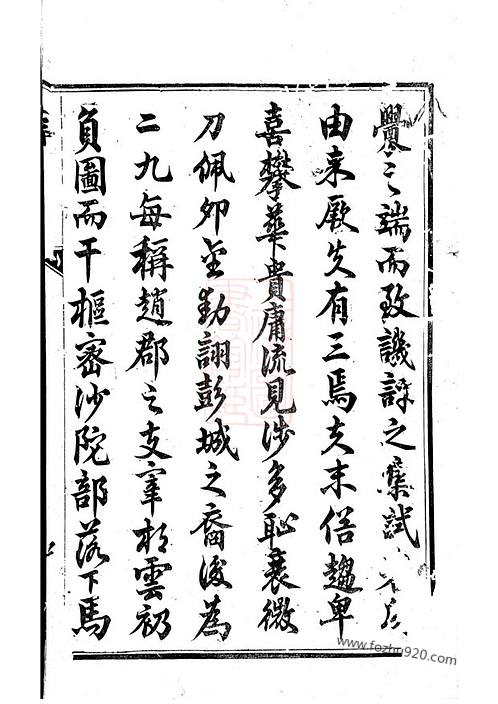 釁之端而致譏諍之集試
由来厥失有三焉夫末俗趨卑
喜攀華貴庸流見淺多恥衰微
刀佩卯金動詡彭城之裔溲為
二九每稱趙郡之支宰相雲初
負圖而干樞密沙陀部落下馬
www.fozhu920.com